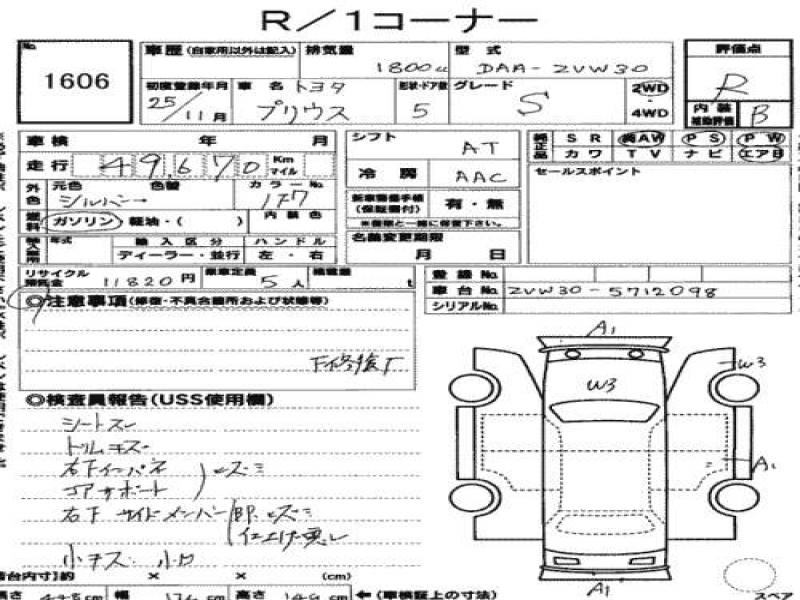 R／1コーナー
No. 1606
車歴 (自家用以外は記入) 排気量 1800cc 型式 DAA-ZVW30
初度登録年月 25/11月 車名 トヨタ プリウス 形状・ドア数 5 グレード S 2WD ・ 4WD
評価点 R
内装 補助評価 B
車検 年 月
走行 49,670 Km マイル
外色 元色 シルバー 色替 カラーNo. 1F7
燃料 ガソリン 軽油・( ) 内装色
年式 輸入区分 ハンドル
ディーラー・並行 左・右
シフト AT
冷房 AAC
新車整備手帳 (保証書付) 有・無
※書類と一緒に保管下さい。
名義変更期限 月 日
純正品 SR 純AW PS PW
カワ TV ナビ エアB
セールスポイント
リサイクル預託金 11820円 乗車定員 5人 積載量 t
登録No.
車台No. ZVW30-5712098
シリアルNo.
◎注意事項 (修復・不具合箇所および状態等)
下修後T
◎検査員報告 (USS使用欄)
シートスレ
トリムキズ
右下インパネ
コアサポート
ヒズミ
右下 サイドメンバー
ヒズミ
仕上げ悪し
小キズ 小凹
A1
W3
W3
A1
A1
荷台内寸)約 × × (cm)
長さ 448cm 幅 174cm 高さ 149cm ←(車検証上の寸法)
スペア